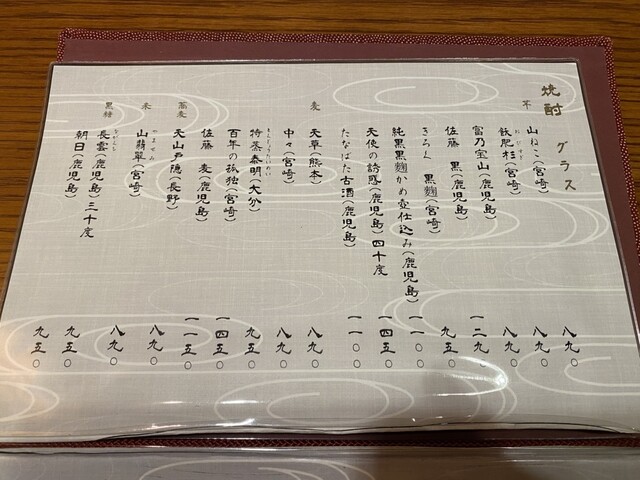 焼酎 グラス
芋
山ねこ(宮崎) 八九〇
飫肥杉(宮崎) 八九〇
富乃宝山(鹿児島) 八九〇
佐藤 黒(鹿児島) 一二九〇
きろく 黒麹(宮崎) 九五〇
純黒黒麹かめ壺仕込み(鹿児島) 一一〇〇
天使の誘惑(鹿児島)四十度 一四五〇
たなばた古酒(鹿児島) 一一〇〇
麦
天草(熊本) 八九〇
中々(宮崎) 八九〇
特蒸泰明(大分) 九五〇
百年の孤独(宮崎) 一四五〇
佐藤 麦(鹿児島) 一一五〇
蕎麦
天山戸隠(長野) 八九〇
米
山翡翠(宮崎) 八九〇
黒糖
長雲(鹿児島)三十度 九五〇
朝日(鹿児島) 九五〇